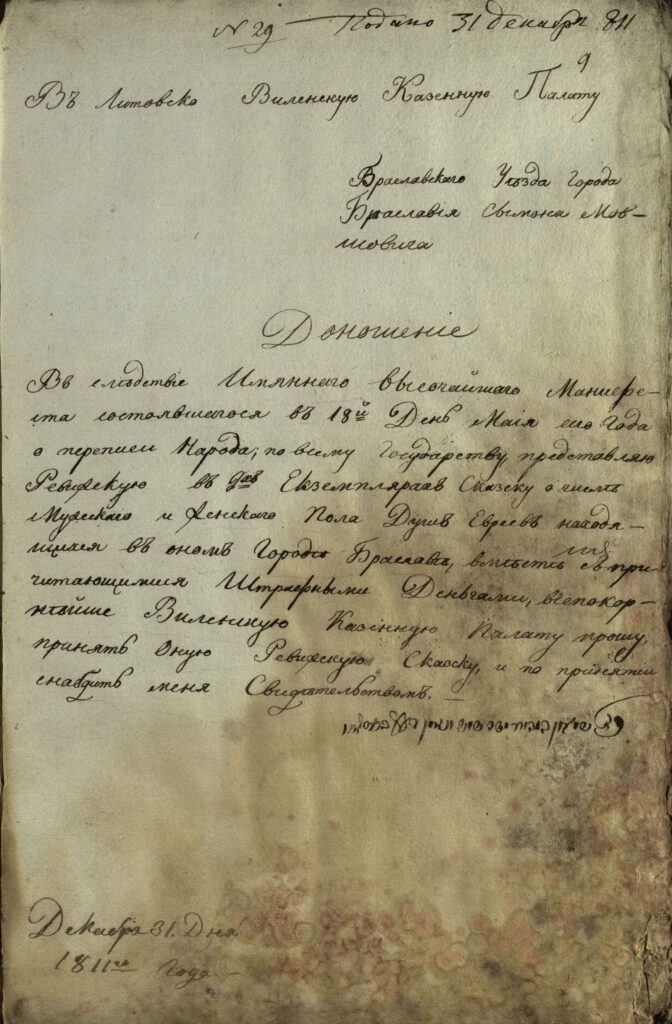 № 29 — Подано 31 декабря 811
9
Въ Литовско Виленскую Казенную Палату
Браславскаго Уѣзда города
Браславія Сымона Мов–
шовича
Доношеніе
Въ слѣдствіе Имяннаго высочайшаго Манифе–
ста состоявшагося въ 18й День Маія сего Года
о переписи Народа, по всему Государству, представляю
Ревизскую въ двѣ Екземплярахъ Сказку о числѣ
Мужскаго и Женскаго Пола Душъ Евреевъ находя–
щихся въ ономъ Городѣ Браславѣ, вмѣстѣ съ при
читающимися Штрафными Деньгами, всепокор–
нѣйше Виленскую Казѣнную Палату прошу,
принять оную Ревизскую Сказку, и по принятіи
снабдить меня Свидѣтельствомъ. —
Декабря 31. Дня
1811го Года —